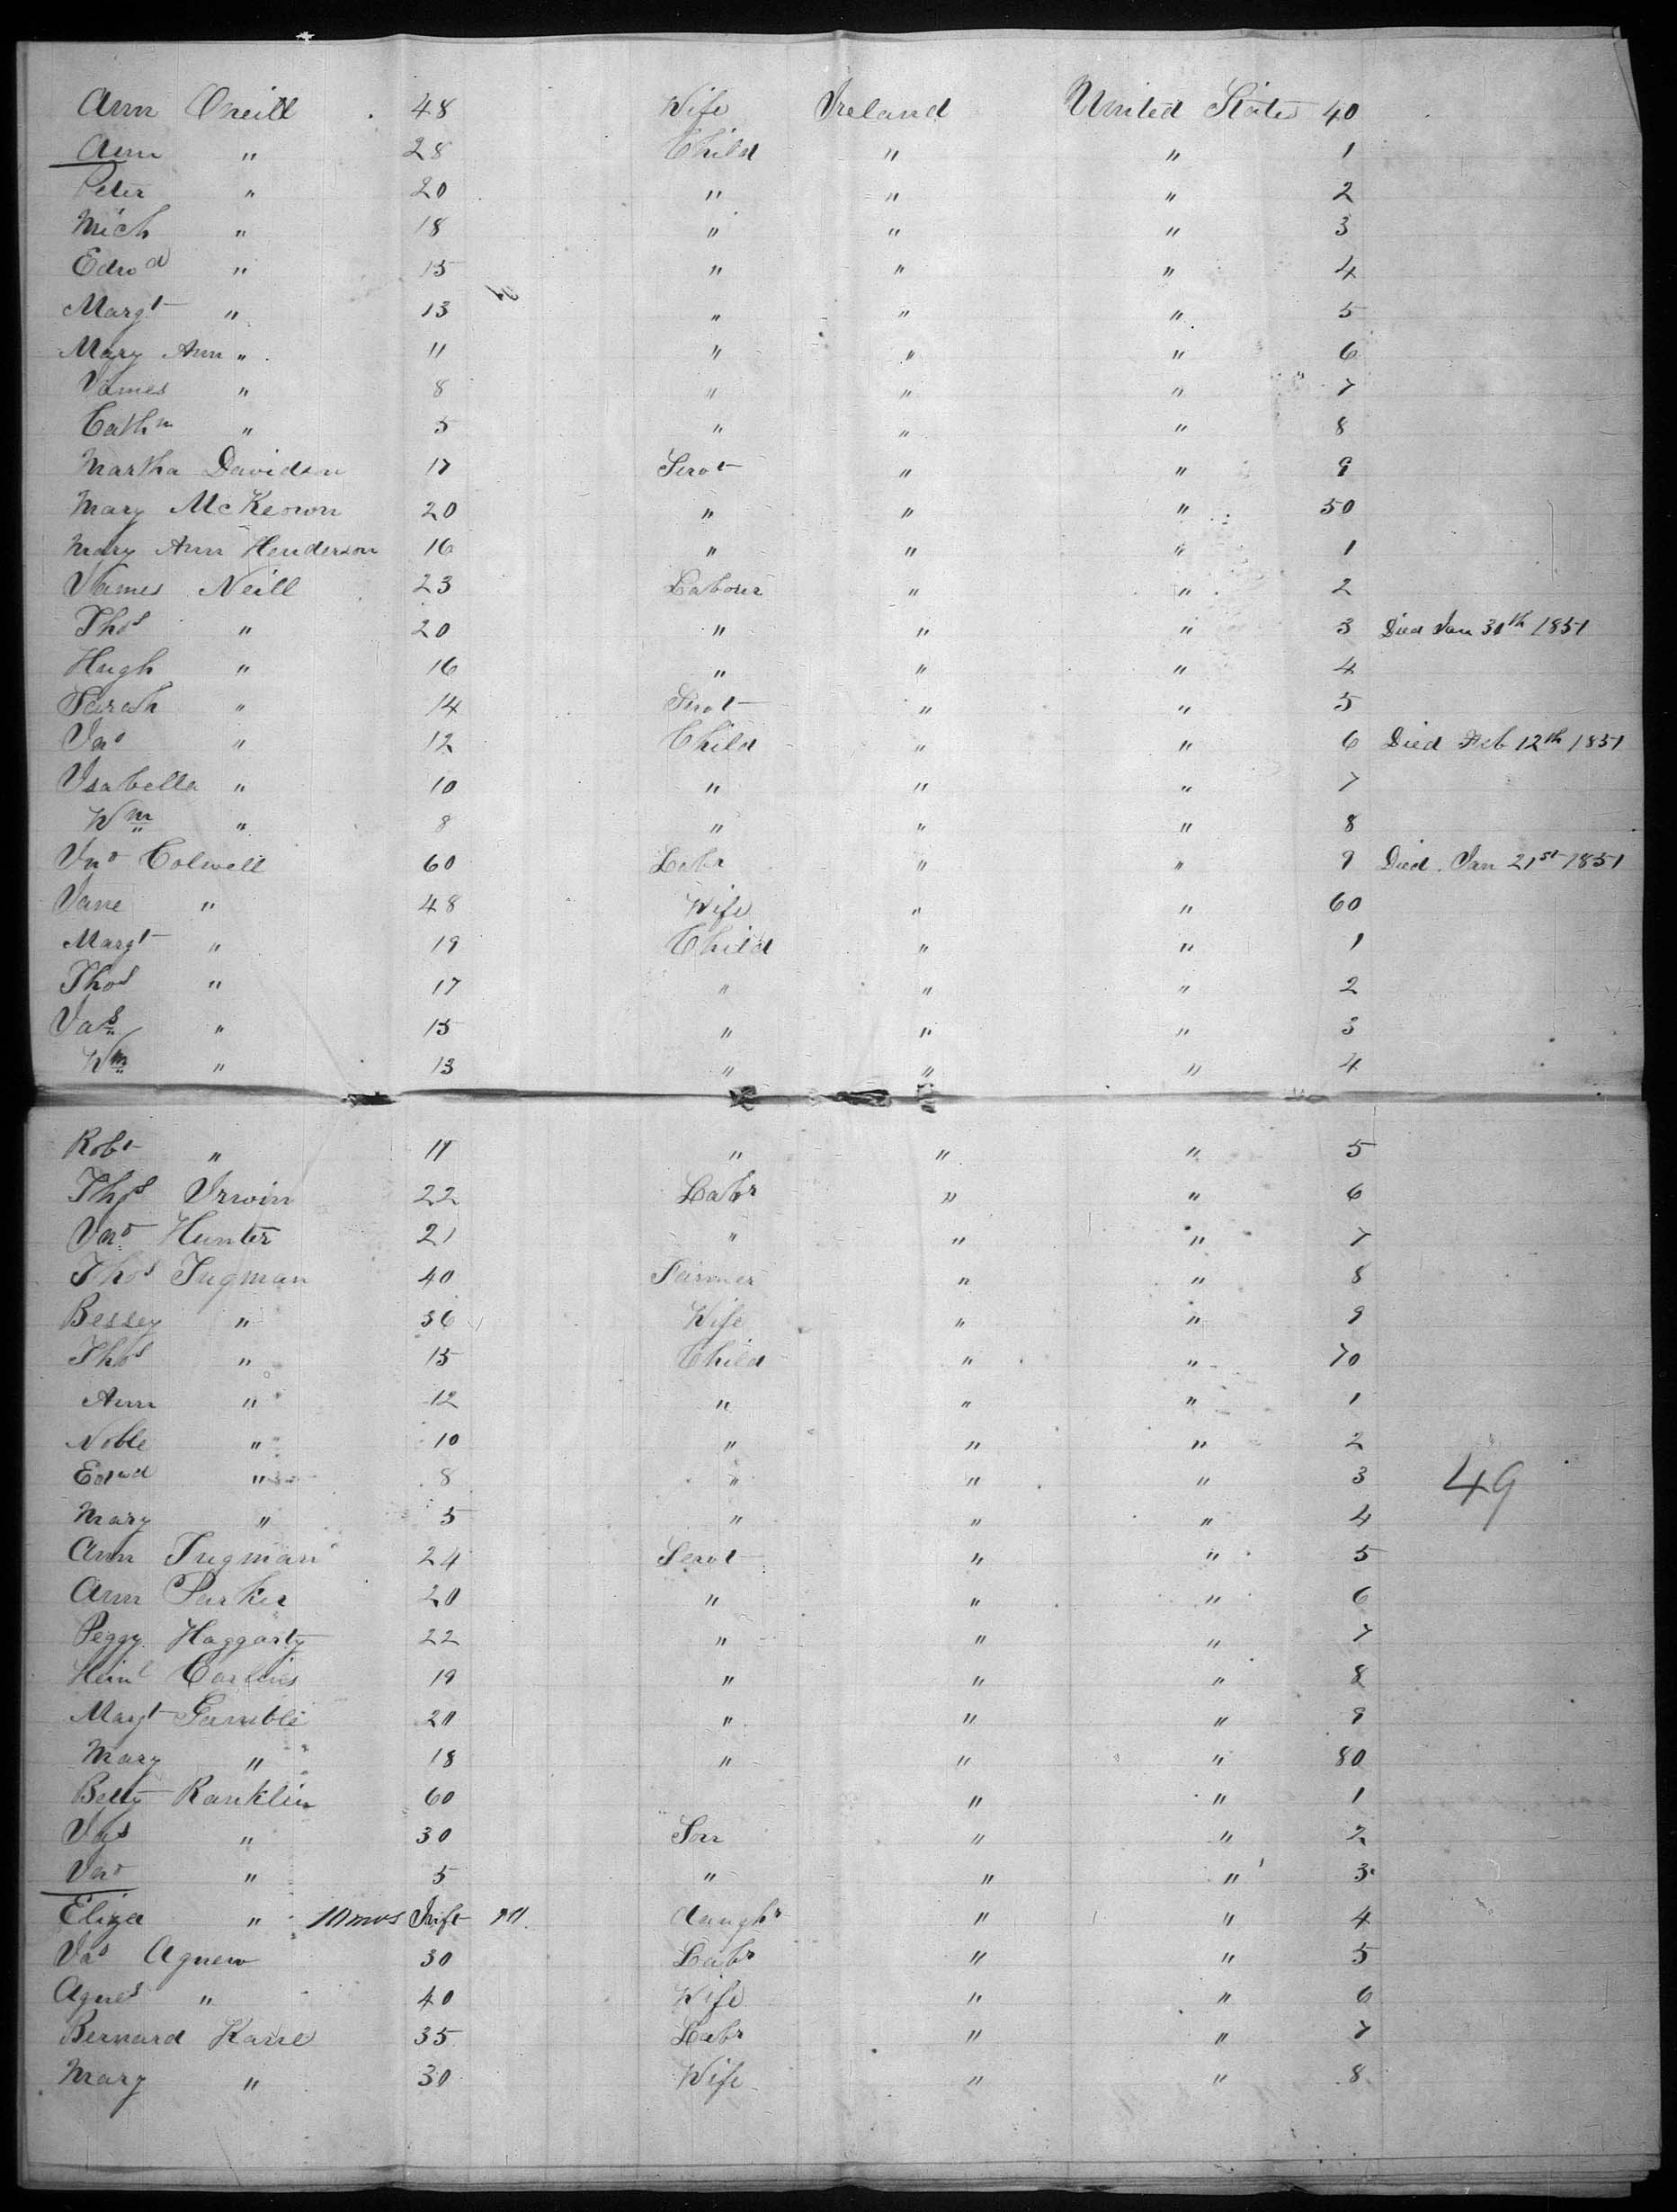 Ann Oneill 48 Wife Ireland United States 40
Ann " 28 Child " " 1
Peter " 20 " " " 2
Mich " 18 " " " 3
Edwd " 15 " " " 4
Margt " 13 " " " 5
Mary Ann " 11 " " " 6
James " 8 " " " 7
Cathn " 5 " " " 8
Martha Davidson 17 Servt " " 9
Mary McKeown 20 " " " 50
Mary Ann Henderson 16 " " " 1
James Neill 23 Labour " " 2
Thos " 20 " " " 3 Died Jan 30th 1851
Hugh " 16 " " " 4
Sarah " 14 Servt " " 5
Jno " 12 Child " " 6 Died Feb 12th 1851
Isabella " 10 " " " 7
Wm " 8 " " " 8
Jno Colwell 60 Labr " " 9 Died. Jan 21st 1851
Jane " 48 Wife " " 60
Margt " 19 Child " " 1
Thos " 17 " " " 2
Jas " 15 " " " 3
Wm " 13 " " " 4
Robt " 11 " " " 5
Thos Irwin 22 Labr " " 6
Jno Hunter 21 " " " 7
Thos Tugman 40 Farmer " " 8
Bessey " 36 Wife " " 9
Thos " 15 Child " " 70
Ann " 12 " " " 1
Noble " 10 " " " 2
Edwd " 8 " " " 3
49
Mary " 5 " " " 4
Ann Tugman 24 Servt " " 5
Ann Parker 20 " " " 6
Peggy Haggarty 22 " " " 7
19 " " " 8
Margt Gamble 20 " " " 9
Mary " 18 " " " 80
Betty Ranklin 60 " " 1
Jas " 30 Son " " 2
Jno " 5 " " " 3
Eliza " 10 mos Inft daughr " " 4
Jas Agnew 30 Labr " " 5
Agnes " 40 Wife " " 6
Bernard Kane 35 Labr " " 7
Mary " 30 Wife " " 8